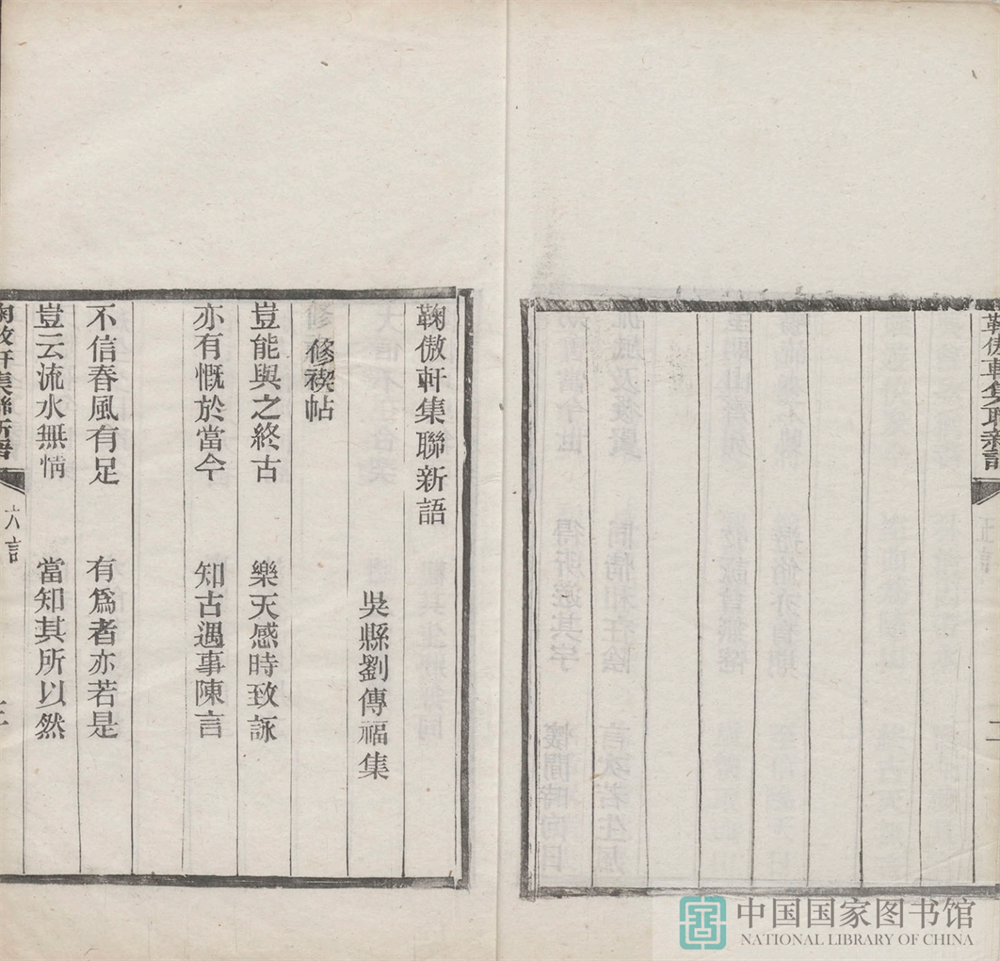 鞠傲軒集聯新語
二
鞠傲軒集聯新語
吳縣劉傳福集
修禊帖
豈能與之終古　樂天感時致詠
亦有慨於當今　知古遇事陳言
不信春風有足　有爲者亦若是
豈云流水無情　當知其所以然
鞠傲軒集聯新語　六言
中国国家图书馆
NATIONAL LIBRARY OF CHINA